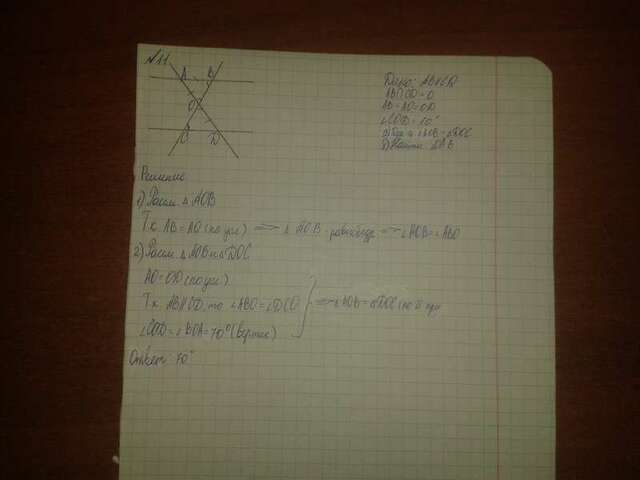 №11
A B
O
C D
Дано: AB||CD
AB∩CD=O
AB=AO=OD
∠COD=70°
а) Док-ть ∠AOB=∠DOC
б) Найти
Решение
1) Рассм. △AOB
Т.к. AB=AO (по усл.) ⇒ △AOB - равнобедр. ⇒ ∠AOB=∠ABO
2) Рассм. △AOB и △DOC
AO=OD (по усл.)
Т.к. AB||CD, то ∠ABO=∠DCO ⇒ △AOB=△DOC (по II пр.)
∠COD=∠BOA=70° (вертик.)
Ответ: 70°